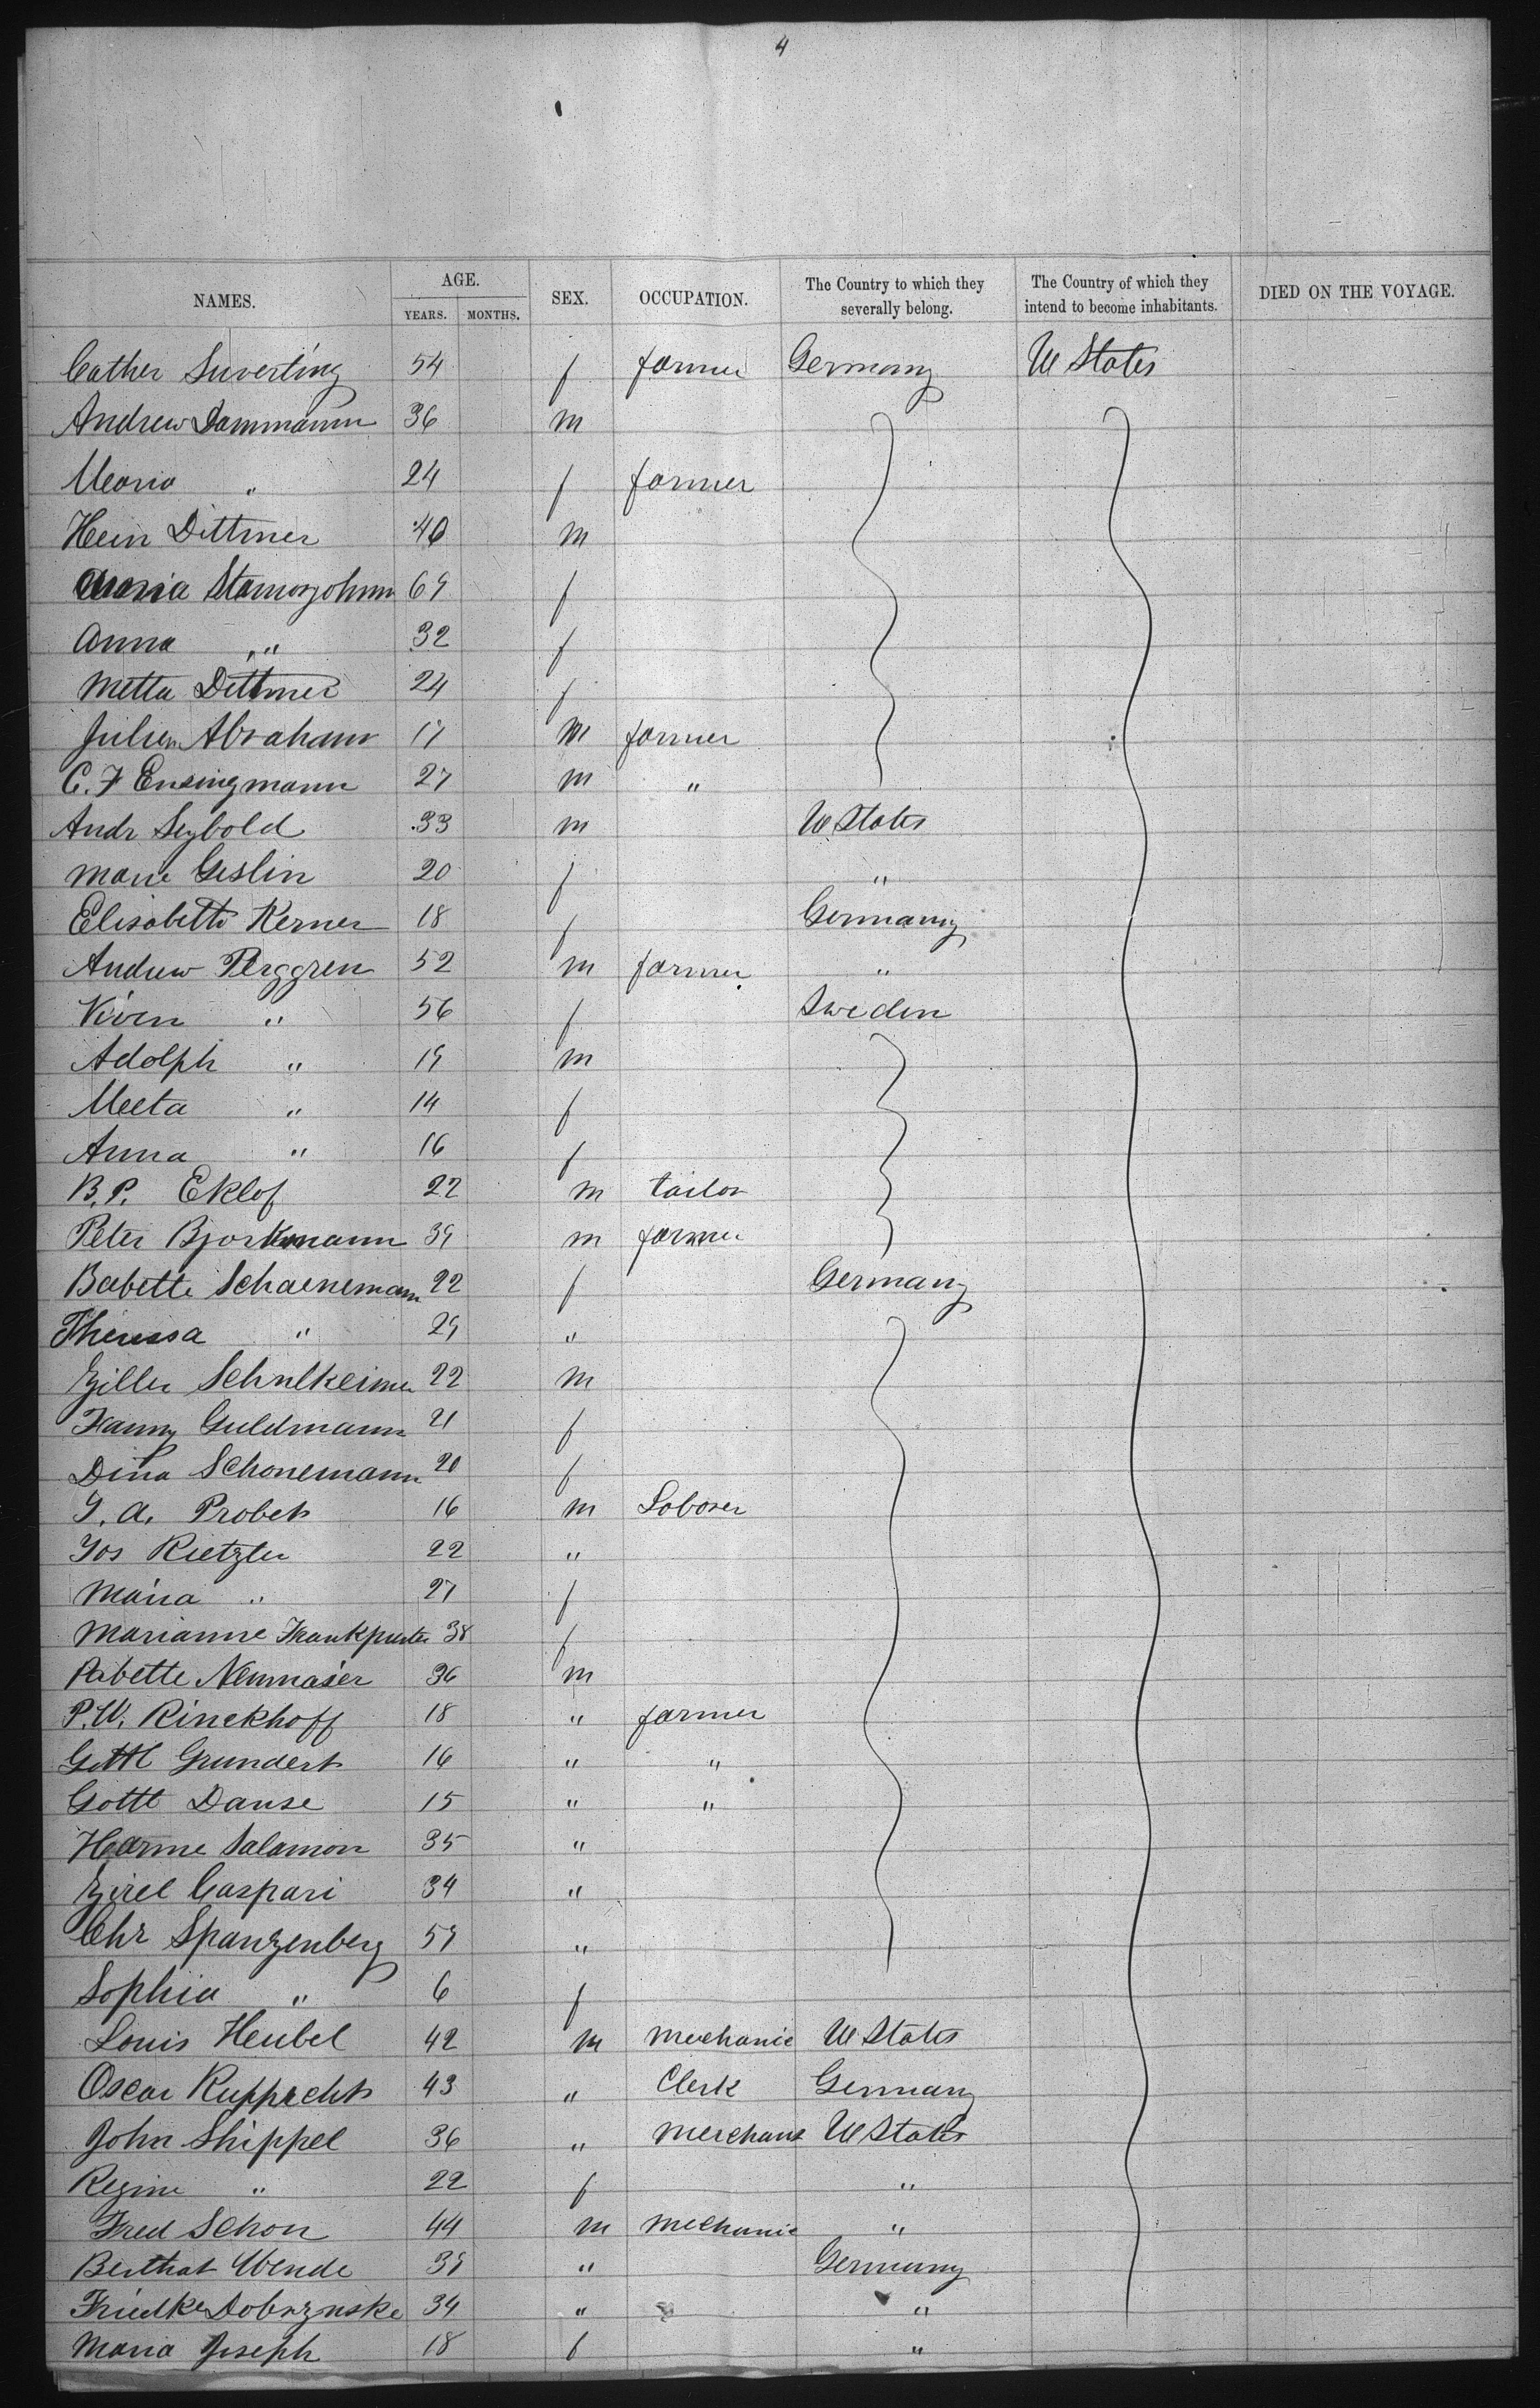 4
NAMES. AGE. SEX. OCCUPATION. The Country to which they severally belong. The Country of which they intend to become inhabitants. DIED ON THE VOYAGE.
YEARS. MONTHS.
Cather Suverting 54 f farmer Germany U States
Andrew Dammann 36 m
Maria " 24 f farmer
Hein Dittmer 40 m
Maria 69 f
Anna " 32 f
Metta Dittmer 24 f
Julien Abraham 17 m farmer
C. F Ensingmann 27 m "
Andr Seybold 33 m U States
Marie Geslin 20 f "
Elisabette Kerner 18 f Germany
Andrew Perggren 52 m farmer "
56 f Sweden
Adolph " 19 m
Meeta " 14 f
Anna " 16 f
B. P. Eklof 22 m tailor
Peter Bjorkmann 39 m farmer
Babette Schaenemann 22 f Germany
Theressa " 29 "
22 m
Fanny Guldmann 21 f
Dina Schonemann 20 f
J. A. Probek 16 m Laborer
Jos Rietzler 22 "
Maria " 27 f
Marianne 38 f
Pabette Neumaier 36 m
P. W. Rinekhoff 18 " farmer
Gottl Grundert 16 " "
Gottl Danse 15 " "
Harme Salamon 35 "
Caspari 34 "
Chr Spangenberg 59 "
Sophia " 6 f
Louis Heubel 42 m mechanic U States
Oscar Rupprecht 43 " Clerk Germany
John Shippel 36 " merchant U States
Regine " 22 f "
Fred Schon 44 m mechanic "
Berthat Wende 39 " Germany
Friedke Dobrzynske 34 " "
Maria Joseph 18 f "